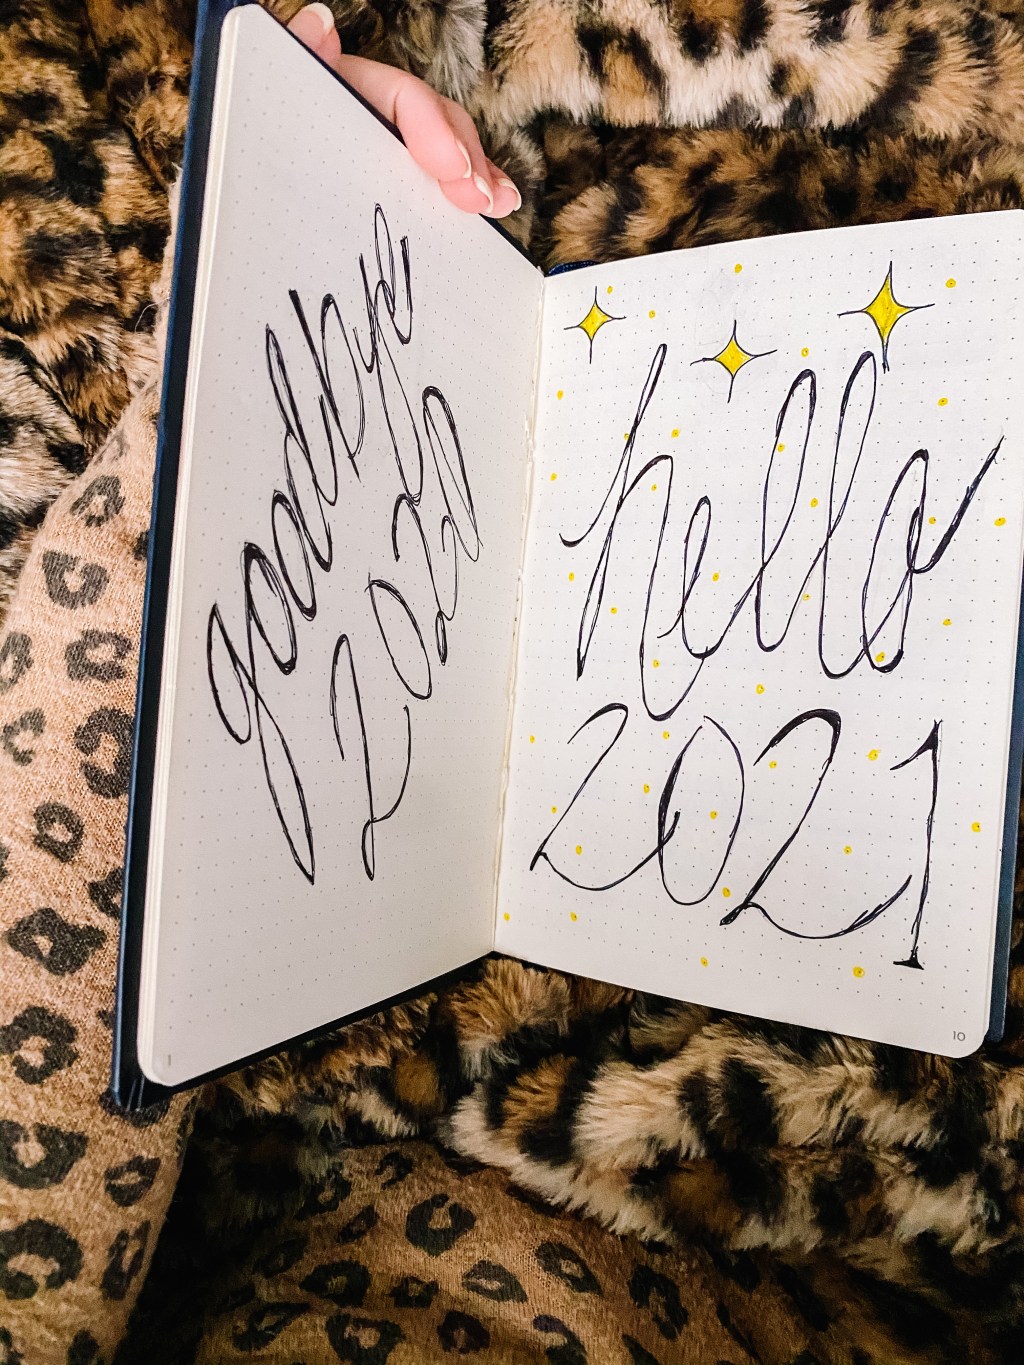 goodbye
2020
hello
2021
1
10